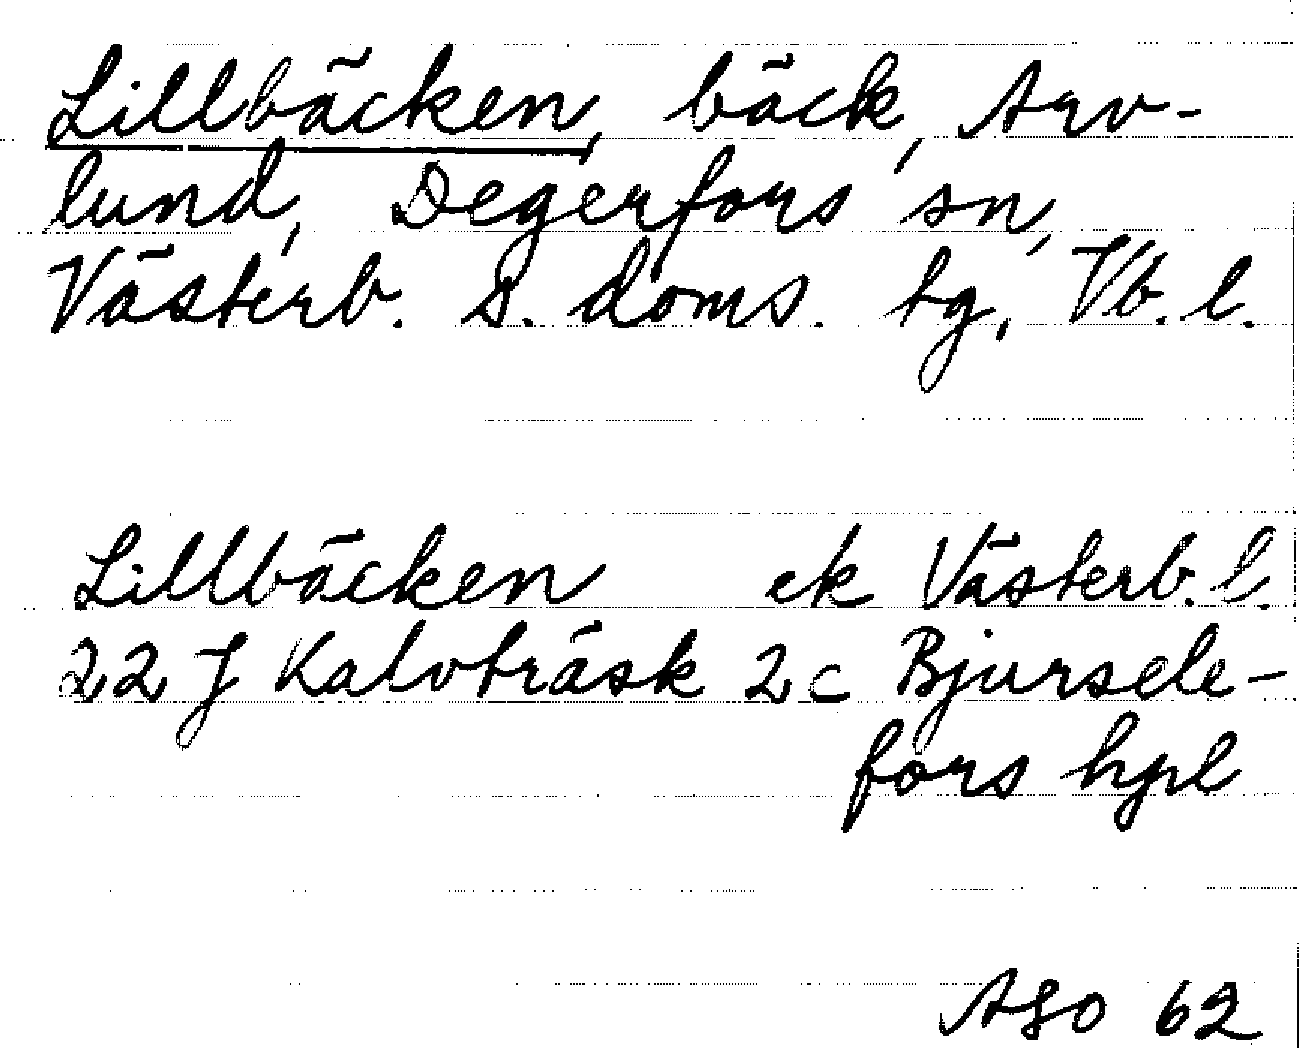 Lillbäcken, bäck, Arv-
lund, Degerfors sn,
Västerb. s. doms. tg, Vb. l.
Lillbäcken ek Västerb. l.
22 J Kalvträsk 2c Bjursele-
fors hpl
62